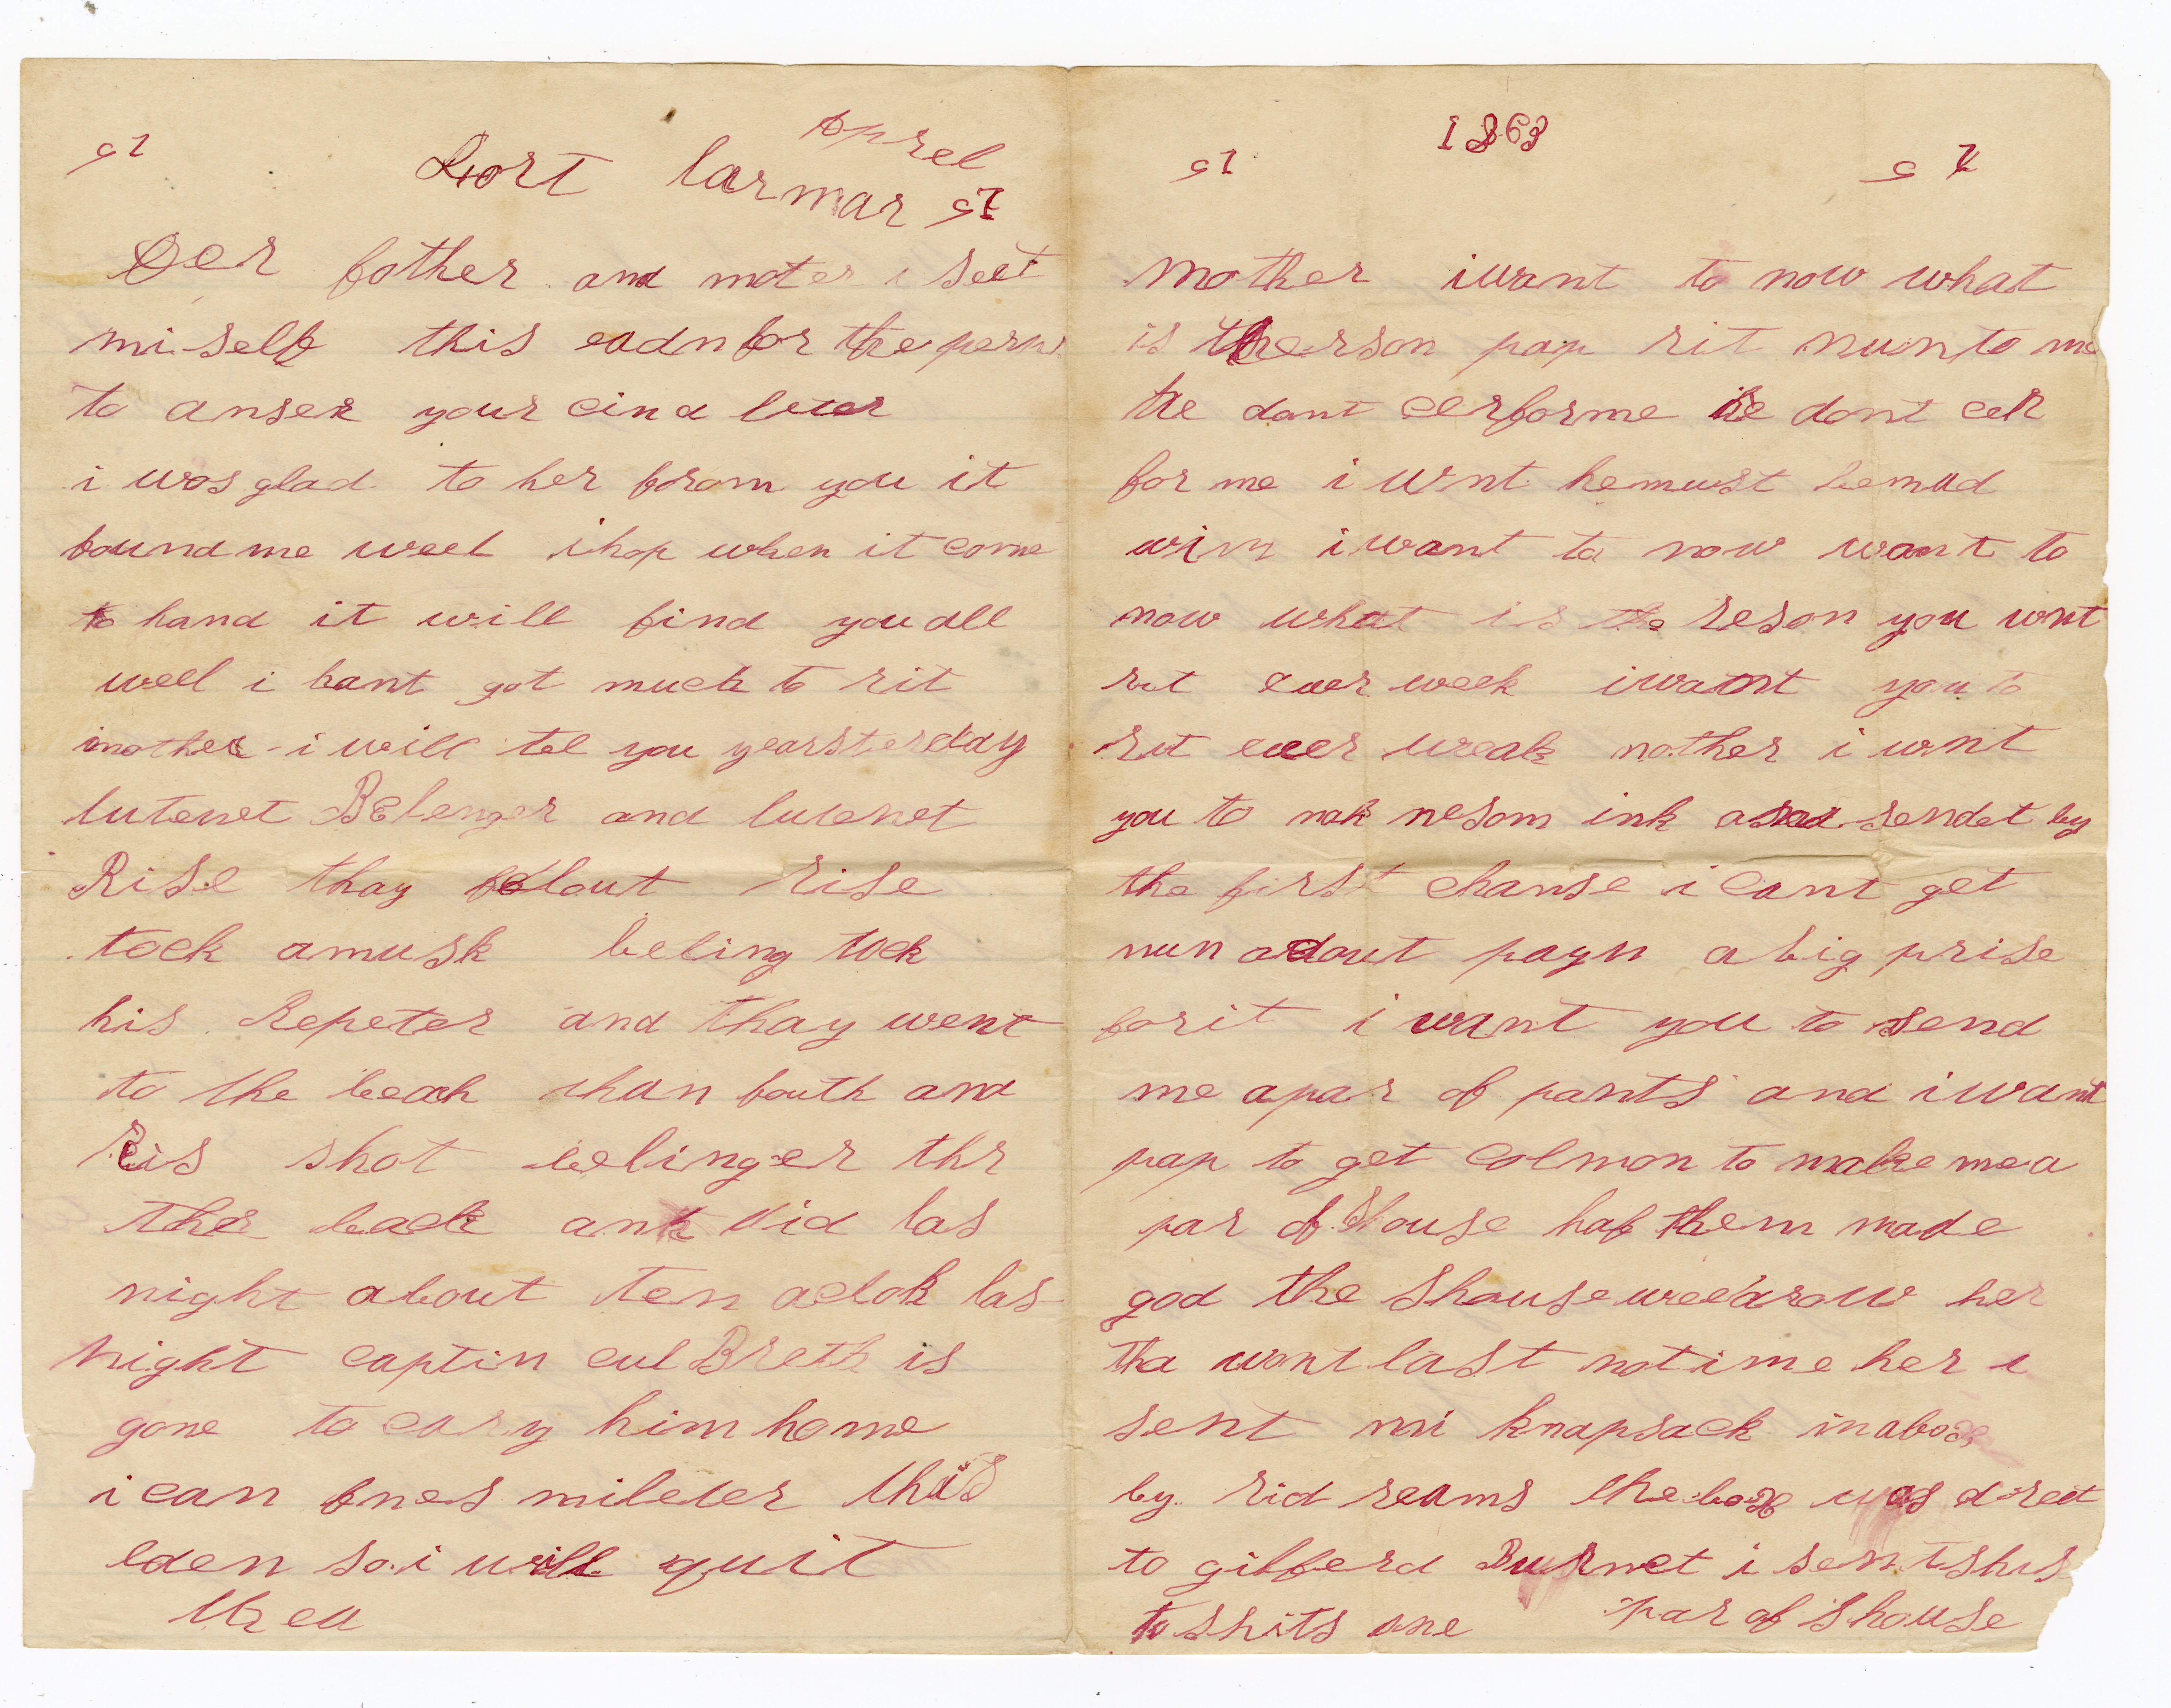 Aprel
Fort larmar
Der father and moter i seet
mi self this eadn for the perps
to anser your cind leter
i was glad to her from you it
found me well i hop when it come
to hand it will find you all
well i hant got much to rit
mother i will tel you yearsterday
lutenet Belenger and lutenet
Rise thay felout rise
tock amusk beling tock
his Repeter and thay went
to the beach than fouth and
Ris shot belinger thr
ther back ank did las
night about ten aclok las
night captin culBreth is
gone to cary him home
i can fnes mileter this
eden so i will quit
1863
mother i want to now what
is therson pap rit nun to me
he dont cerforme he dont cer
for me i wnt hemust bemad
i want to now want to
now what is the reson you wnt
rit ever week iwant you to
rit ever weak mother i wnt
you to mak me som ink and sendet by
the first chanse i cant get
nun adout payn abig prise
forit i want you to send
me apar of pants and i want
pap to get Colmon to make me a
par of shouse haf them made
god the shouse wee drow her
tha wont last notime her i
sent mi knapsack in abox
by rid reams the box was direct
to gifferd Burnet i sent shis
to shits one par of shouse